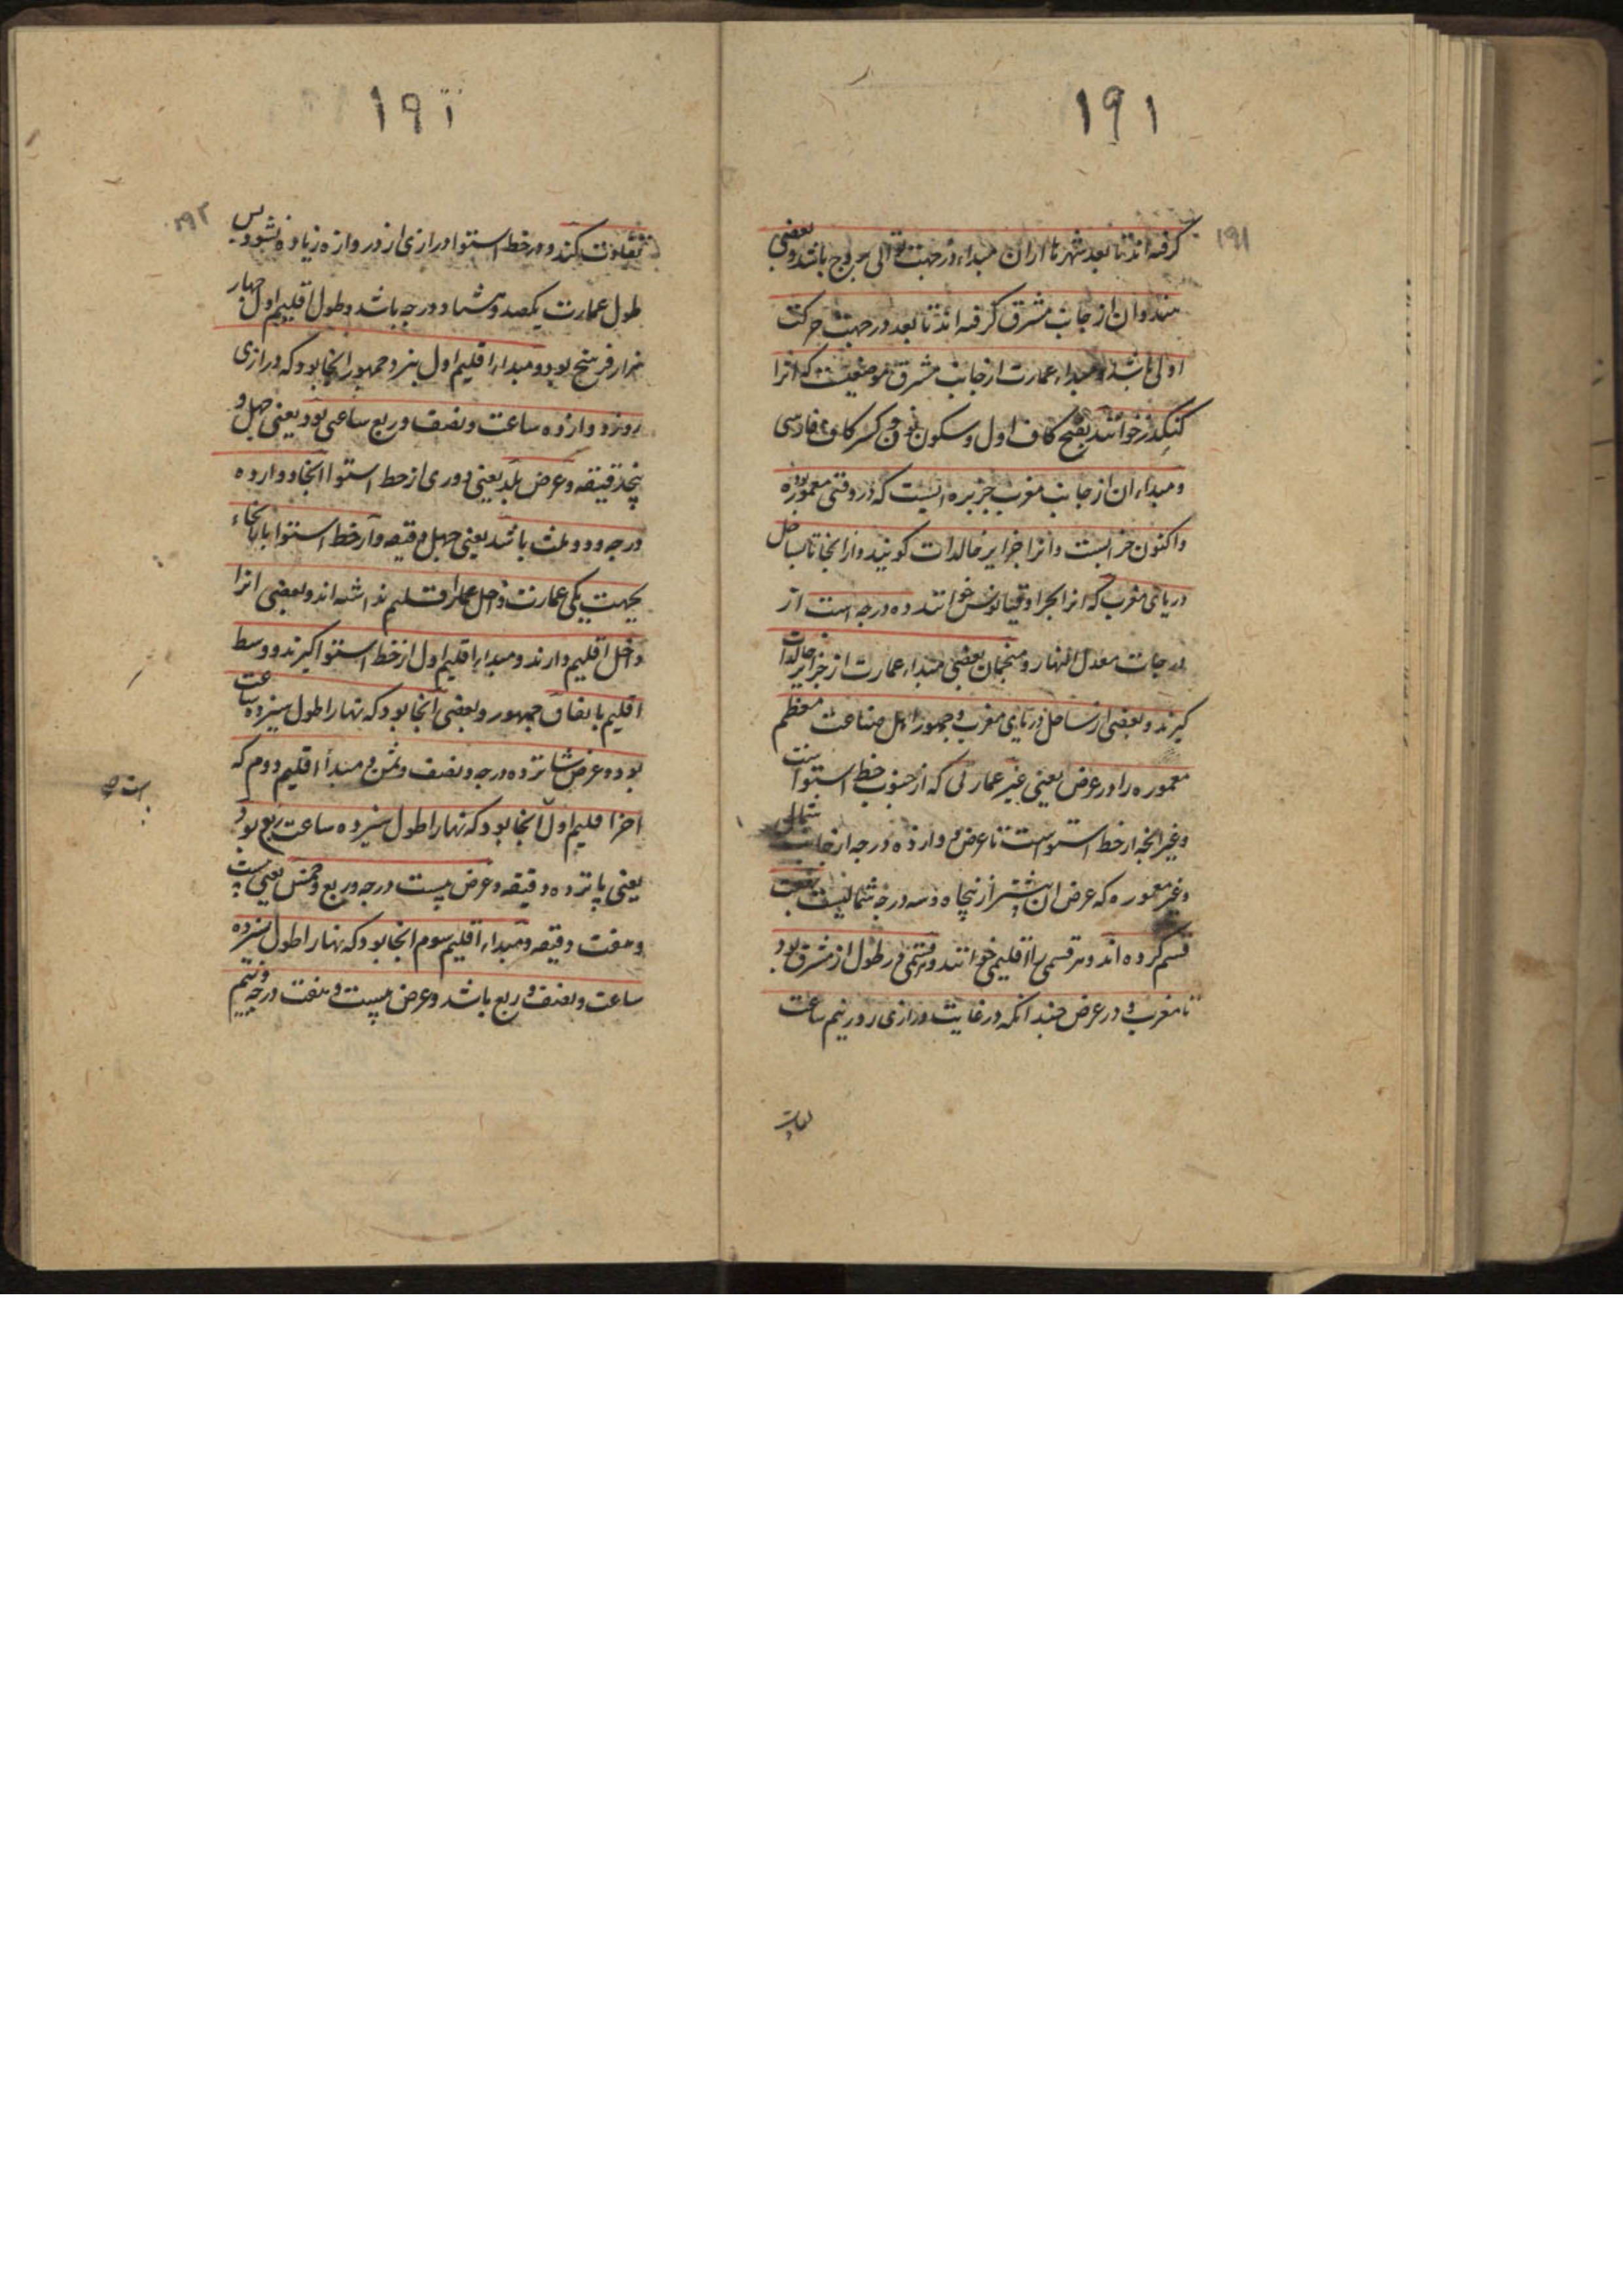 ۱۹۱
۱۹۱
گرفته اند تا بعد شهرها از ان مبداء در جهت توالی بروج باشد و بعضی
هندوان از جانب مشرق گرفته اند تا بعد در جهت حرکت
اولی باشد و مبداء عمارت از جانب مشرق موضعیست که انرا
کنکدز خوانند بفتح کاف اول و سکون نون و کسر کاف فارسی
و مبداء ان از جانب مغرب جزیره ایست که در وقتی معموره بود
و اکنون خرابست و انرا جزایر خالدات گویند و از انجا تا بساحل
دریای مغرب که انرا بحر اوقیانوس خوانند ده درجه است از
درجات معدل النهار و منجمان بعضی مبداء عمارت از جزایر خالدات
گیرند و بعضی از ساحل دریای مغرب و جمهور اهل صناعت معظم
معموره را در عرض یعنی غیر عمارتی که از جنوب خط استواست
و غیر انچه از خط استواست تا عرض دوازده درجه از جانب شمالی
و غیر معموره که عرض ان بیشتر از پنجاه و سه درجه شمالیست بهفت
قسم کرده اند و هر قسمی را اقلیمی خوانند و هر قسمی در طول از مشرق بود
تا مغرب و در عرض چندانکه در غایت درازی روز نیم ساعت
تفاوت
۱۹۲
تفاوت کند و در خط استوا درازی از دوازده زیاده نشود پس
طول عمارت یکصد و هشتاد درجه باشد و طول اقلیم اول چهار
هزار فرسنج بود و مبداء اقلیم اول بنزد جمهور انجا بود که درازی
روز دوازده ساعت و نصف و ربع ساعتی بود یعنی چهل و
پنج دقیقه و عرض بلد یعنی دوری از خط استوا انجا دوازده
درجه و دو ثلث باشد یعنی چهل دقیقه و از خط استوا تا بانجا
بجهت یکی عمارت داخل عمار اقلیم نداشته اند و بعضی انرا
داخل اقلیم دارند و مبداء اقلیم اول از خط استوا گیرند و وسط
اقلیم باتفاق جمهور و بعضی انجا بود که نهار اطول سیزده ساعت
بود و عرض شانزده درجه و نصف و ثمن و مبدأ اقلیم دوم که
اخر اقلیم اول انجا بود که نهار اطول سیزده ساعت و ربع بود
یعنی پانزده دقیقه و عرض بیست درجه و ربع و خمس یعنی بیست
و هفت دقیقه و مبداء اقلیم سوم انجا بود که نهار اطول سیزده
ساعت و نصف و ربع باشد و عرض بیست و هفت درجه و نیم